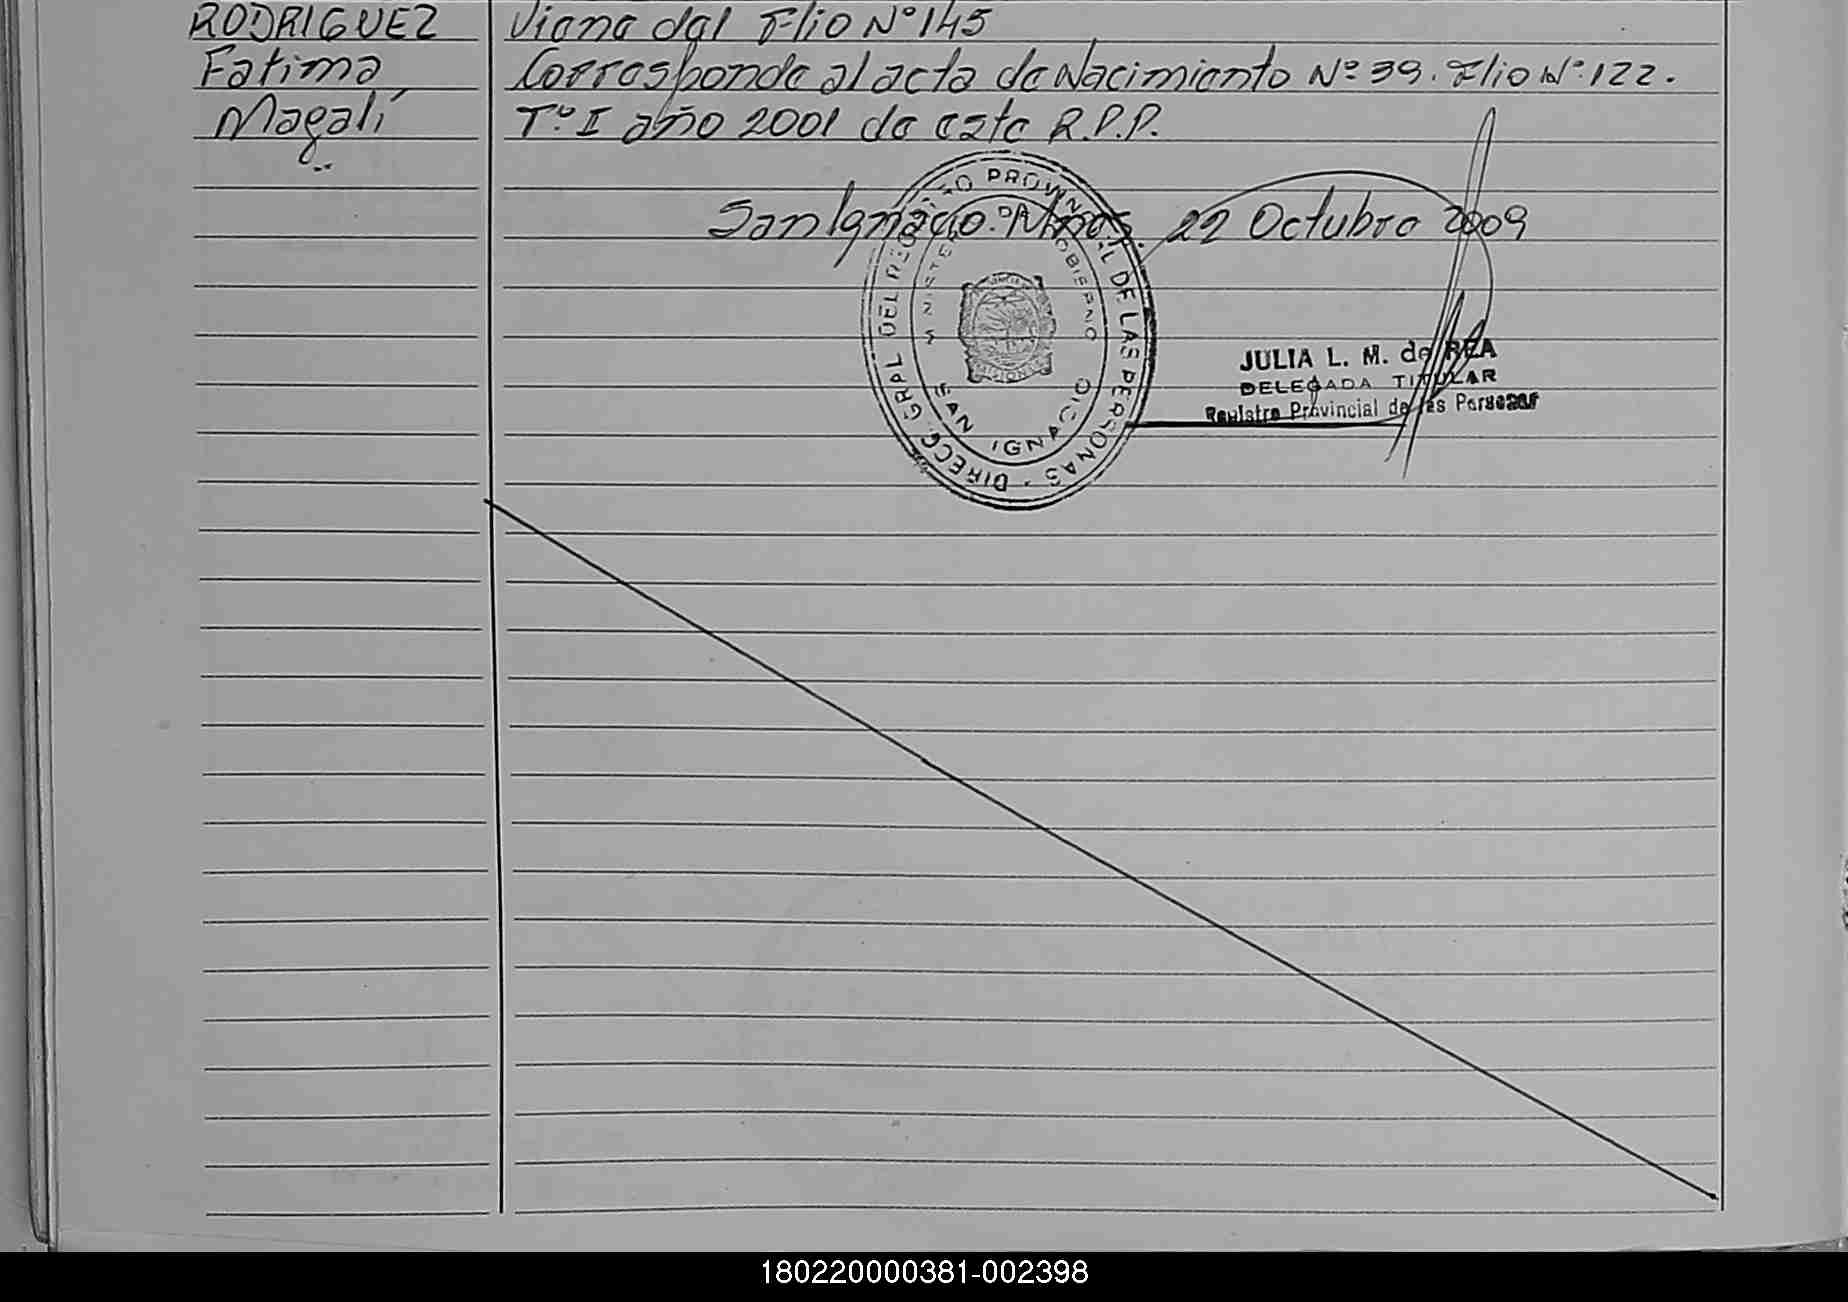 RODRIGUEZ Viene del Flio Nº 145
Fatima Corresponde al acta de Nacimiento Nº 39. Flio Nº 122.
Magalí Tº I año 2001 de este R.P.P.
San Ignacio. Mnes. 22 Octubre 2009
DIRECC GRAL DEL REGISTRO PROVINCIAL DE LAS PERSONAS
MINISTE DE GOBIERNO
SAN IGNACIO
JULIA L. M. de REA
DELEGADA TITULAR
Registro Provincial de las Personas
180220000381-002398